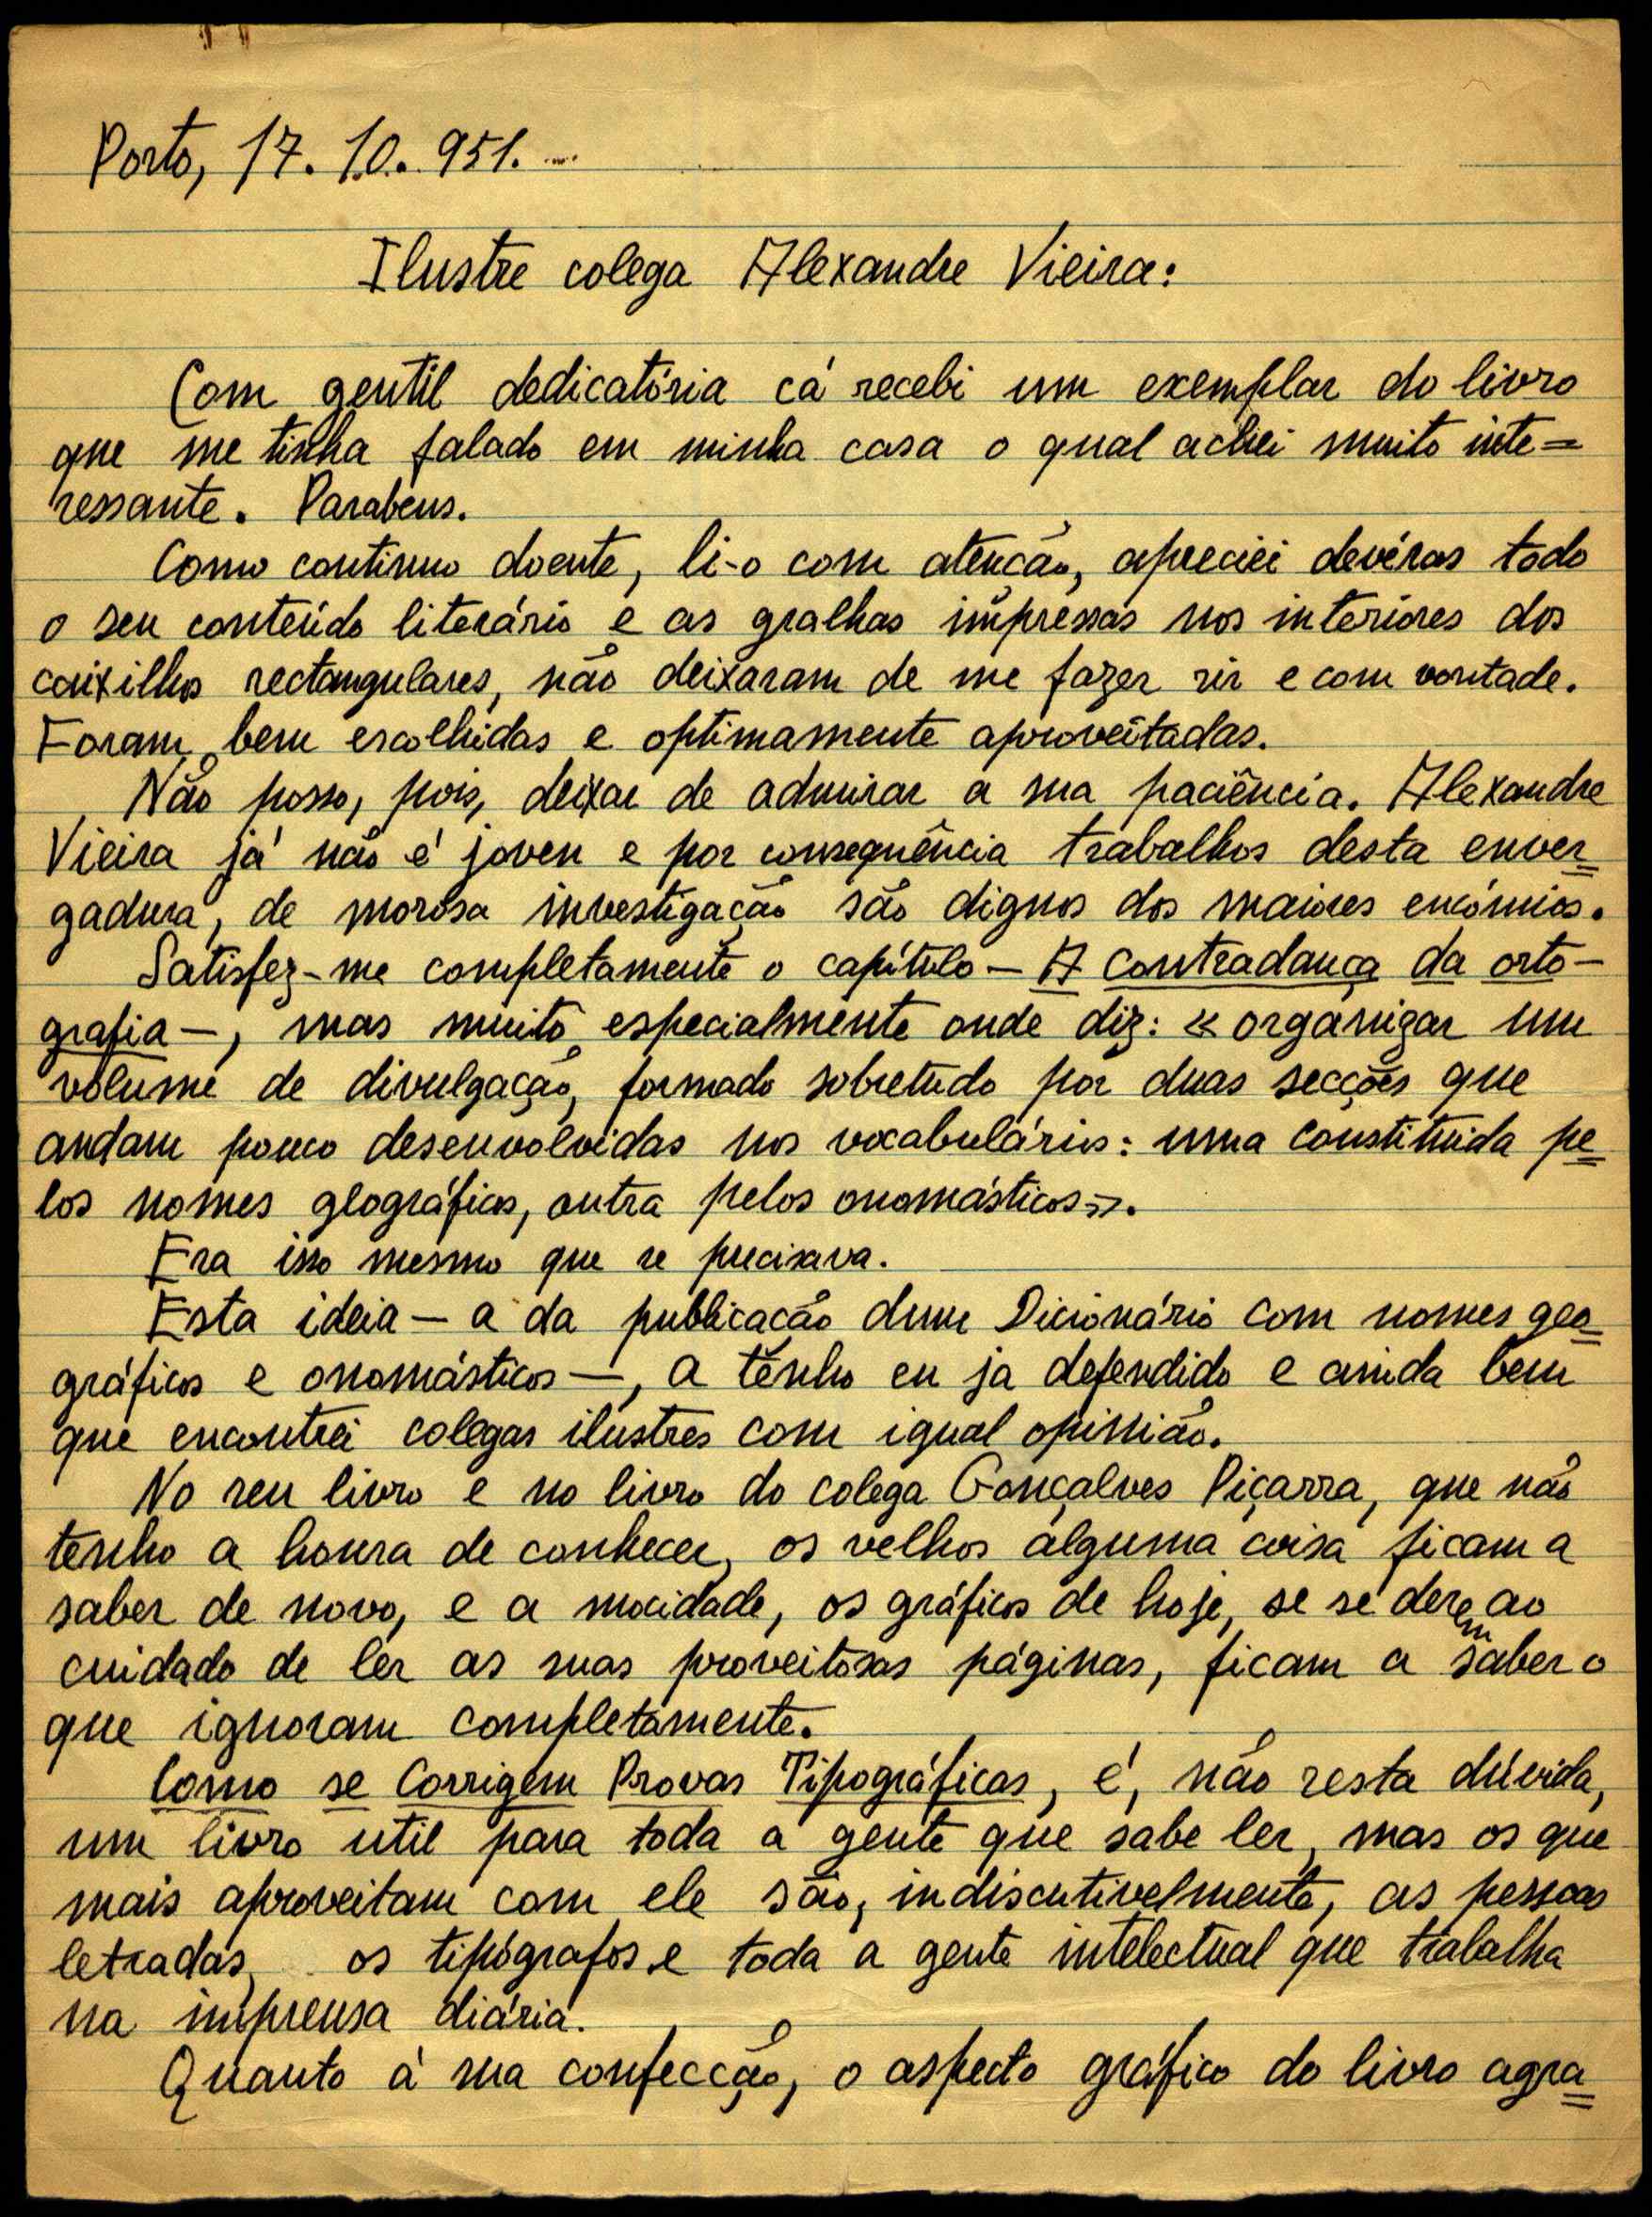 Porto, 17.10.951.
Ilustre colega Alexandre Vieira:
Com gentil dedicatória cá recebi um exemplar do livro
que me tinha falado em minha casa o qual achei muito inte=
ressante. Parabens.
Como continuo doente, li-o com atenção, apreciei devéras todo
o seu conteúdo literário e as gralhas impressas nos interiores dos
caixilhos rectangulares, não deixaram de me fazer rir e com vontade.
Foram bem escolhidas e optimamente aproveitadas.
Não posso, pois, deixar de admirar a sua paciência. Alexandre
Vieira já não é joven e por consequência trabalhos desta enver=
gadura, de morosa investigação são dignos dos maiores encómios.
Satisfez-me completamente o capítulo — A contradança da orto-
grafia —, mas muito especialmente onde diz: « organizar um
volume de divulgação, formado sobretudo por duas secções que
andam pouco desenvolvidas nos vocabulários: uma constituida pe=
los nomes geográficos, outra pelos onomásticos».
Era isso mesmo que se precisava.
Esta ideia — a da publicação dum Dicionário com nomes geo=
gráficos e onomásticos —, a tenho eu ja defendido e ainda bem
que encontrei colegas ilustres com igual opinião.
No seu livro e no livro do colega Gonçalves Piçarra, que não
tenho a honra de conhecer, os velhos alguma coisa ficam a
saber de novo, e a mocidade, os gráficos de hoje, se se derem ao
cuidado de ler as suas proveitosas páginas, ficam a saber o
que ignoram completamente.
Como se Corrigem Provas Tipográficas, é, não resta dúvida,
um livro util para toda a gente que sabe ler, mas os que
mais aproveitam com ele são, indiscutivelmente, as pessoas
letradas, os tipógrafos e toda a gente intelectual que trabalha
na imprensa diária.
Quanto á sua confecção, o aspecto gráfico do livro agra=